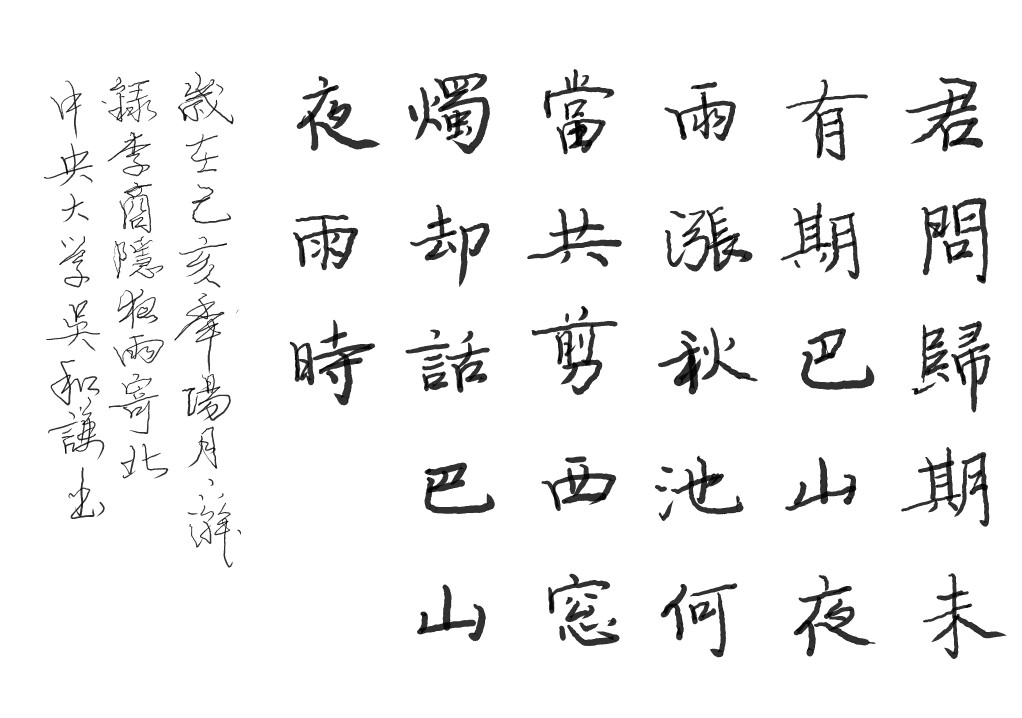 君問歸期未
有期巴山夜
雨漲秋池何
當共剪西窓
燭却話巴山
夜雨時
歲在己亥年陽月
錄李商隱夜雨寄北
中央大学吳和謙书